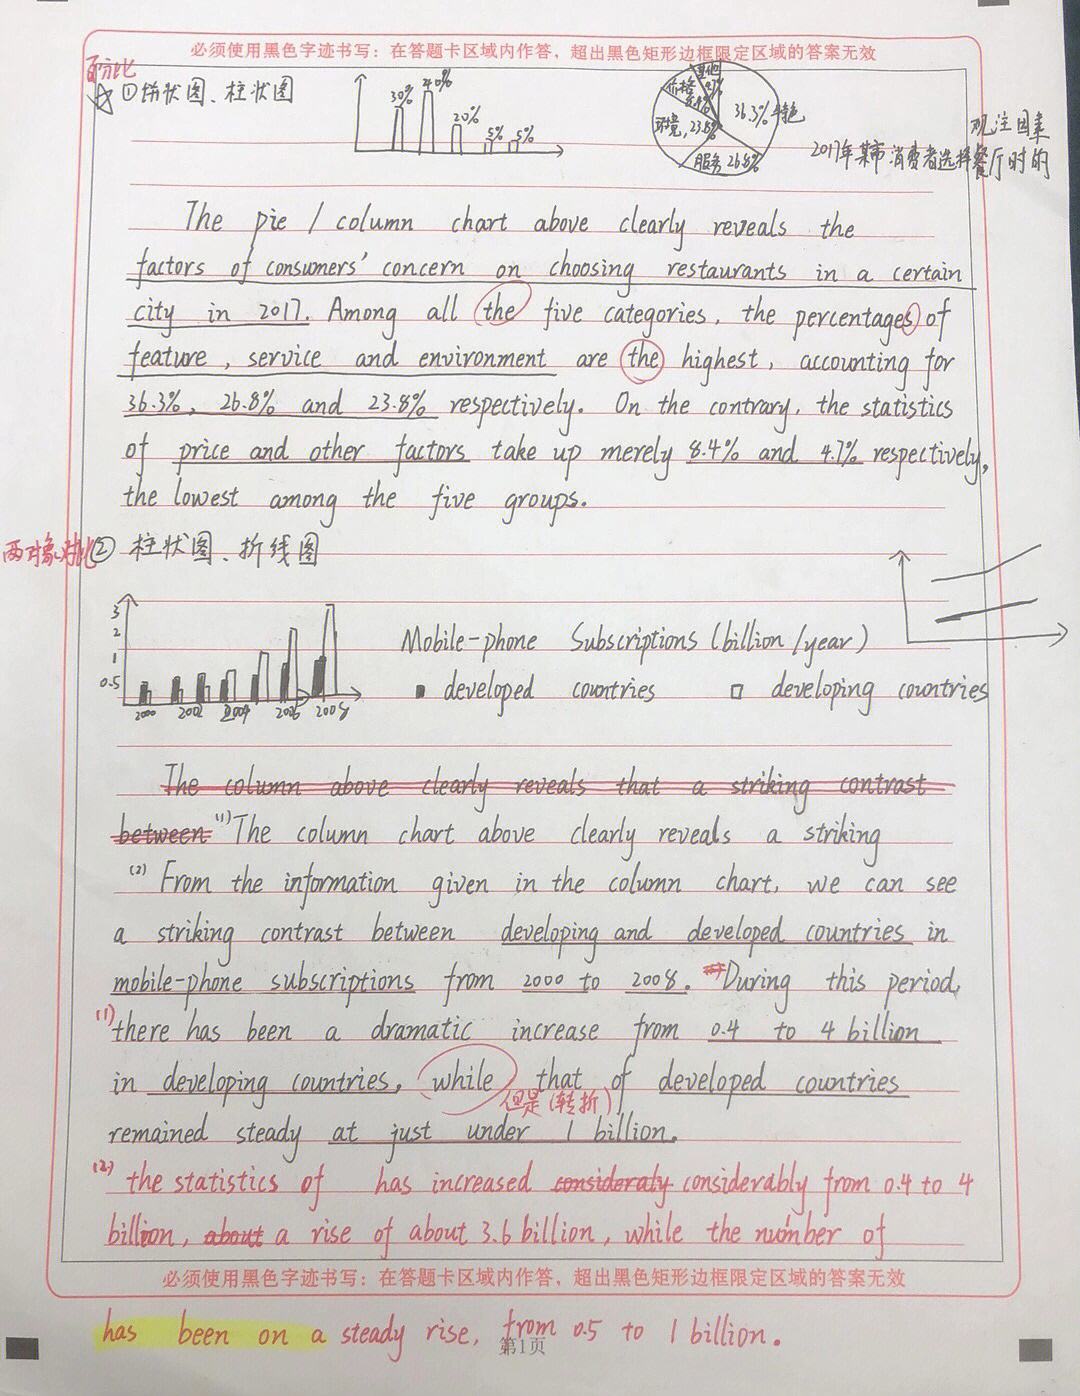 必须使用黑色字迹书写：在答题卡区域内作答，超出黑色矩形边框限定区域的答案无效
百分比
☆ ①饼状图、柱状图
30% 40% 20% 5% 5%
其他 4.7%
价格 8.4%
36.3% 特色
环境, 23.8%
服务 26.8%
观注因素
2017年某市消费者选择餐厅时的
The pie / column chart above clearly reveals the
factors of consumers' concern on choosing restaurants in a certain
city in 2017. Among all the five categories, the percentages of
feature, service and environment are the highest, accounting for
36.3%, 26.8% and 23.8% respectively. On the contrary, the statistics
of price and other factors take up merely 8.4% and 4.7% respectively,
the lowest among the five groups.
两对象对比 ② 柱状图、折线图
3
2
1
0.5
2000 2002 2004 2006 2008
Mobile-phone Subscriptions (billion/year)
■ developed countries □ developing countries
The column above clearly reveals that a striking contrast
between (1) The column chart above clearly reveals a striking
(2) From the information given in the column chart, we can see
a striking contrast between developing and developed countries in
mobile-phone subscriptions from 2000 to 2008. During this period,
(1) there has been a dramatic increase from 0.4 to 4 billion
in developing countries, while that of developed countries
但是(转折)
remained steady at just under 1 billion.
(2) the statistics of has increased consideraty considerably from 0.4 to 4
billion, about a rise of about 3.6 billion, while the number of
必须使用黑色字迹书写：在答题卡区域内作答，超出黑色矩形边框限定区域的答案无效
has been on a steady rise, from 0.5 to 1 billion.
第1页